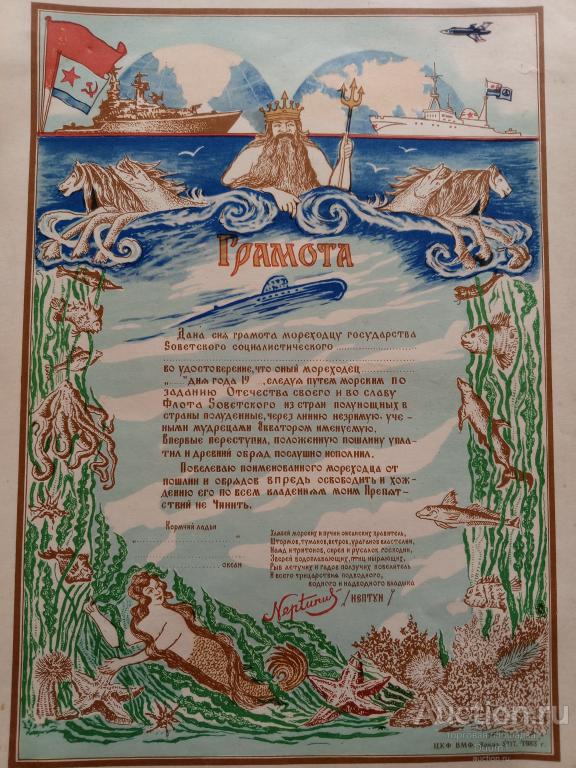 Грамота
Дана сия грамота мореходцу государства
Советского социалистического
во удостоверение, что оный мореходец
„ “ дня года 19 , следуя путем морским по
заданию Отечества своего и во славу
Флота Советского из стран полунощных в
страны полуденные, через линию незримую, уче-
ными мудрецами Экватором именуемую.
Впервые переступил, положенную пошлину упла-
тил и древний обряд послушно исполнил.
Повелеваю поименованного мореходца от
пошлин и обрядов впредь освободить и хож-
дению его по всем владениям моим Препят-
ствий не Чинить.
Кормчий ладьи
„ “
океан
Хлябей морских и пучин океанских хранитель,
Штормов, туманов, ветров, ураганов властелин,
Наяд и тритонов, сирен и русалок господин,
Зверей водоплавающих, птиц ныряющих,
Рыб летучих и гадов ползучих повелитель
И всего трицарствия подводного,
водного и надводного владыка
Neptunus /НЕПТУН/
ЦКФ ВМФ. Заказ 1983 г.
Auction.ru
торговая площадка
auction.ru